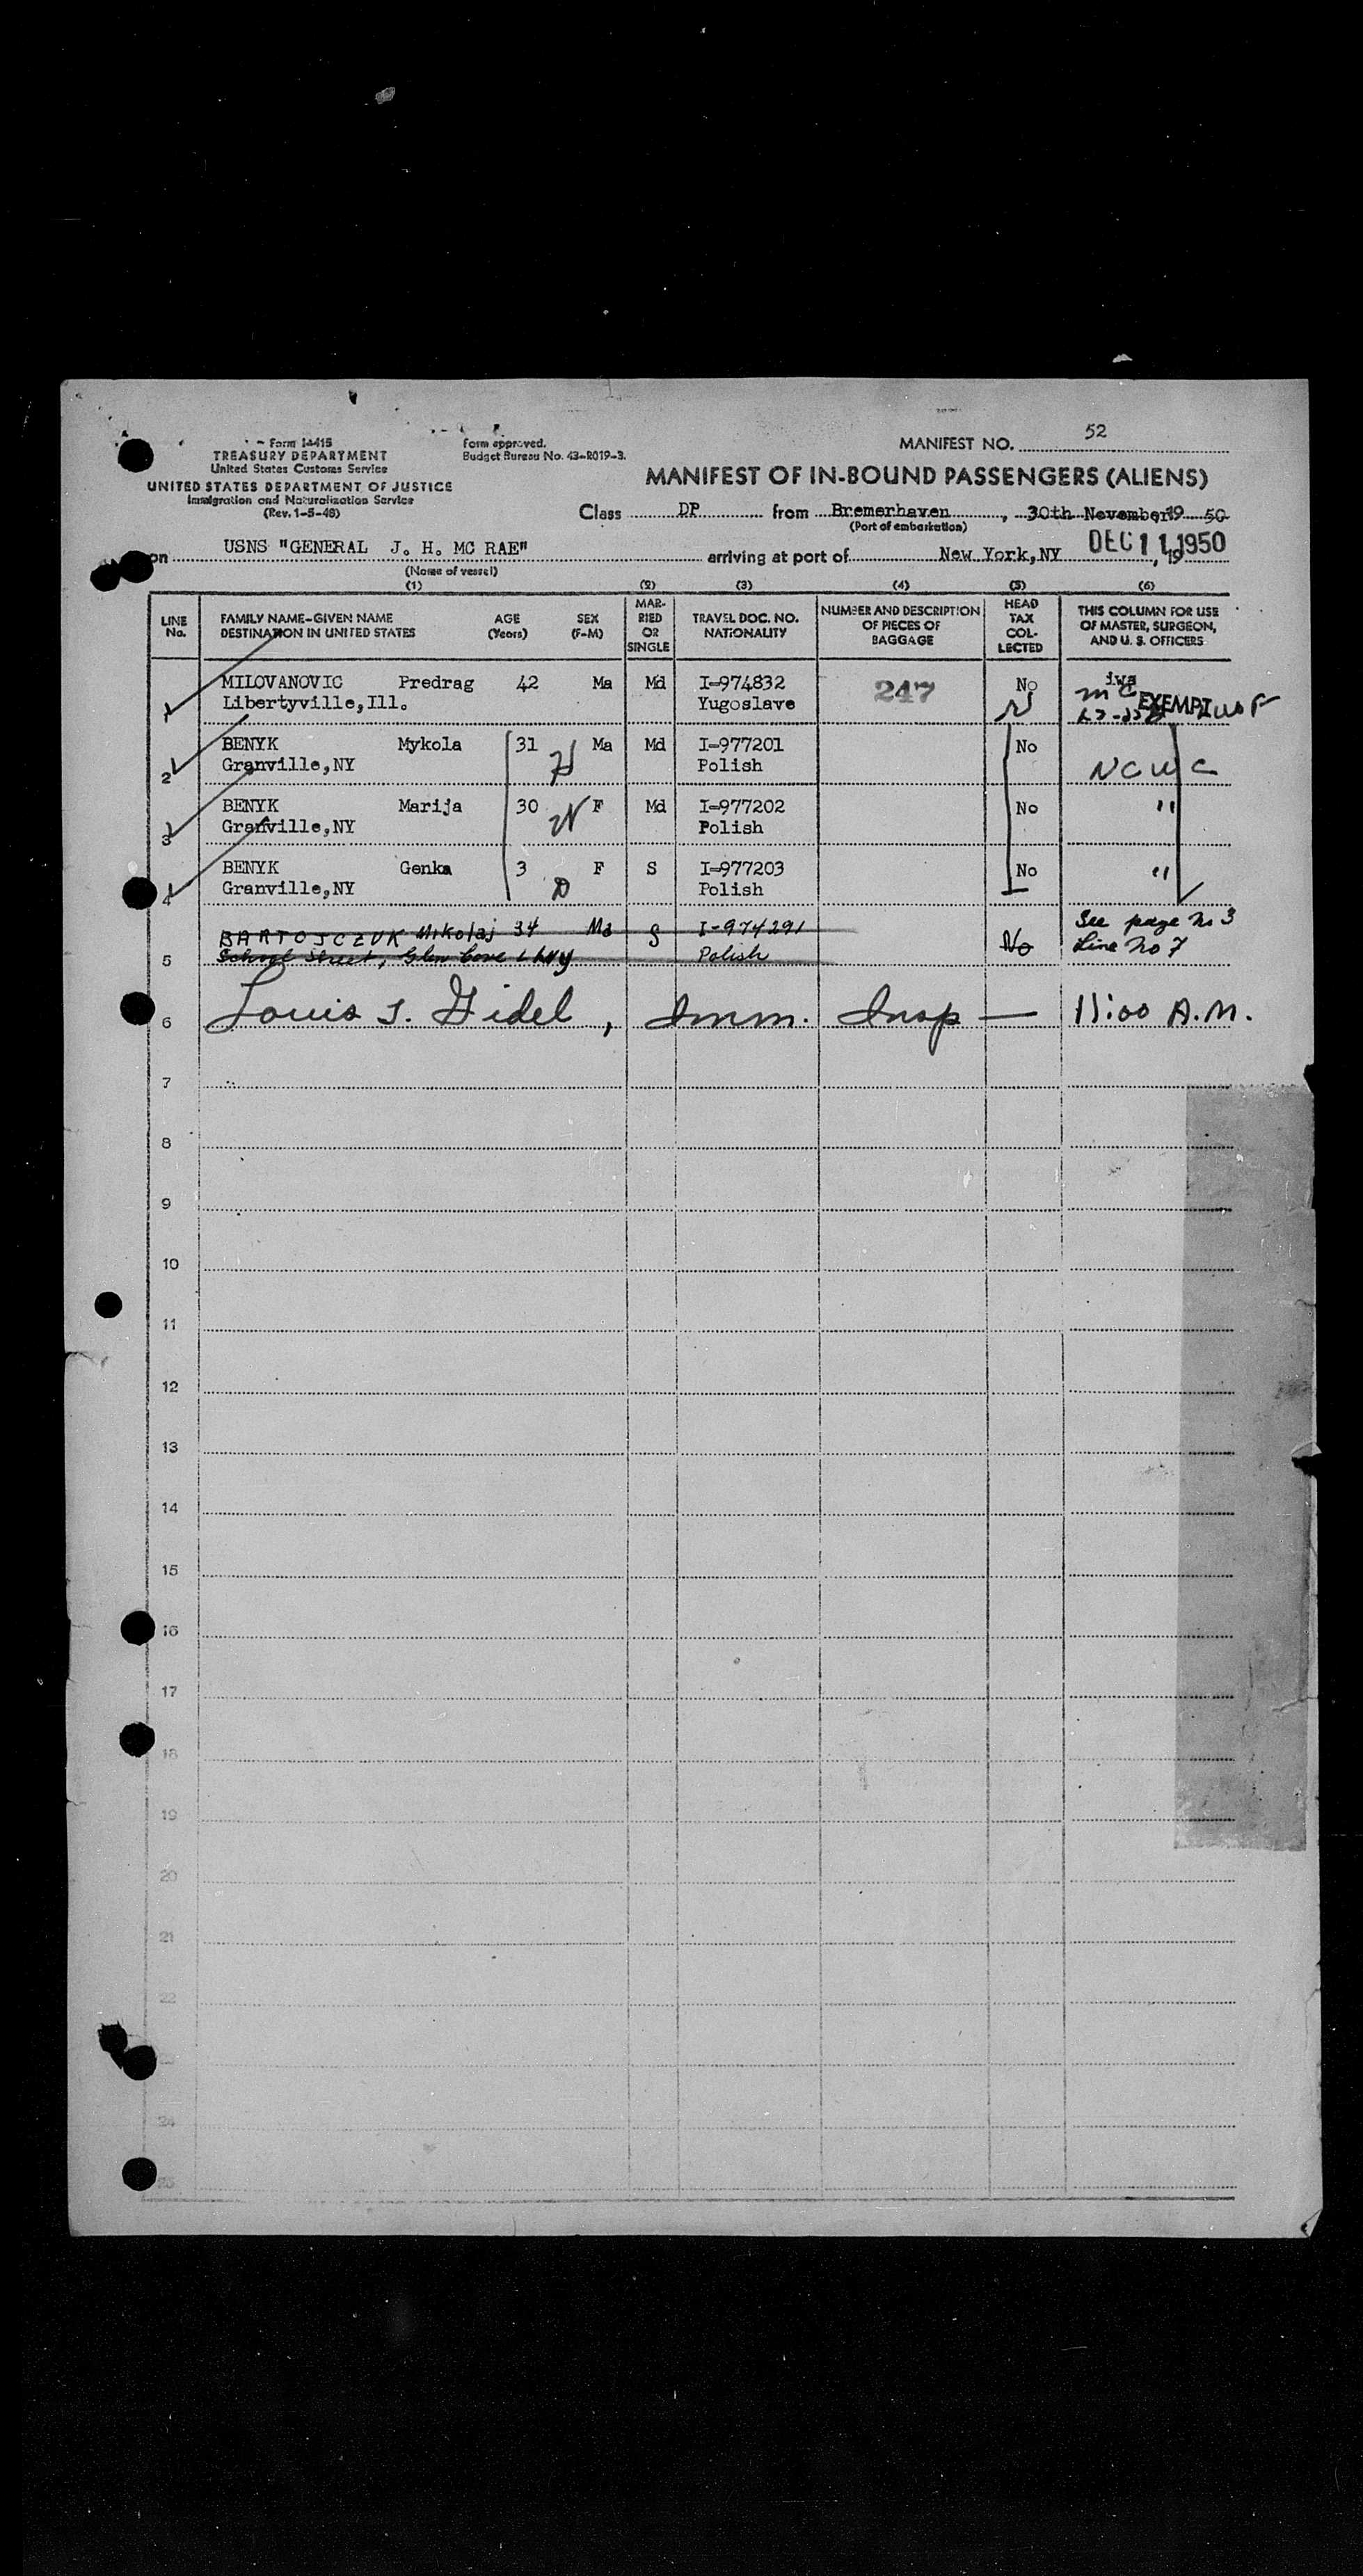 Form I-415
TREASURY DEPARTMENT
United States Customs Service
UNITED STATES DEPARTMENT OF JUSTICE
Immigration and Naturalization Service
(Rev. 1-5-48)
Form approved.
Budget Bureau No. 43-R019-3.
MANIFEST NO. 52
MANIFEST OF IN-BOUND PASSENGERS (ALIENS)
Class DP from Bremerhaven, 30th November, 19 50
(Port of embarkation)
on USNS "GENERAL J. H. MC RAE" arriving at port of New York, NY DEC 11 1950, 19
(Name of vessel)
(1) (2) (3) (4) (5) (6)
LINE No. FAMILY NAME-GIVEN NAME DESTINATION IN UNITED STATES AGE (Years) SEX (F-M) MAR-RIED OR SINGLE TRAVEL DOC. NO. NATIONALITY NUMBER AND DESCRIPTION OF PIECES OF BAGGAGE HEAD TAX COL-LECTED THIS COLUMN FOR USE OF MASTER, SURGEON, AND U. S. OFFICERS
MILOVANOVIC Predrag 42 Ma Md I-974832 247 No
1 Libertyville, Ill. Yugoslave EXEMPT
BENYK Mykola 31 Ma Md I-977201 No
2 Granville, NY Polish NCWC
BENYK Marija 30 F Md I-977202 No "
3 Granville, NY Polish
BENYK Genka 3 F S I-977203 No "
4 Granville, NY Polish
BARTOJCZUK Mikolaj 34 Ma S I-974291 No See page No 3
5 School Street, Glen Cove Polish Line No 7
6 Louis S. Fidel, Imm. Insp — 11:00 A.M.
7
8
9
10
11
12
13
14
15
16
17
18
19
20
21
22
24
25